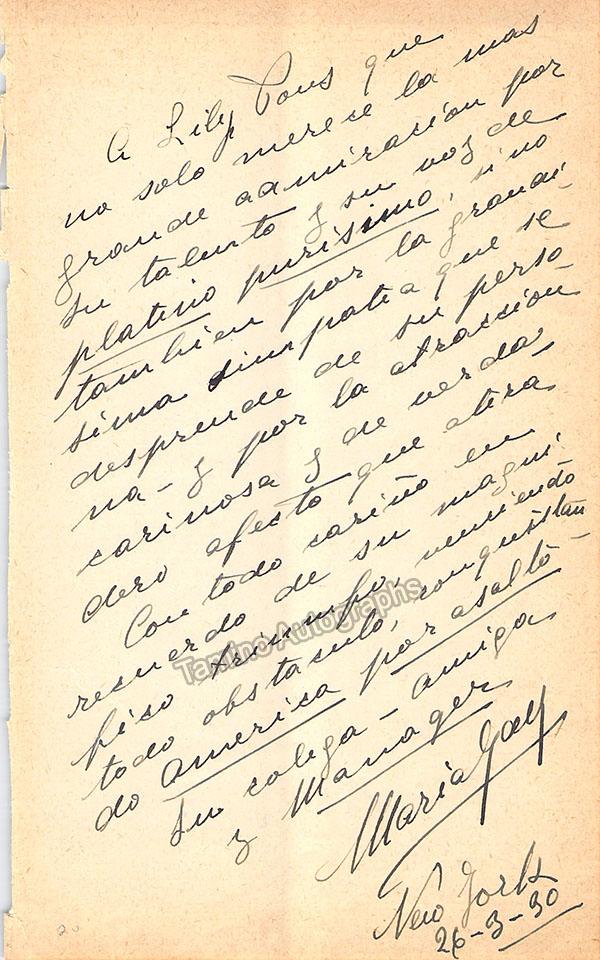 A Lily Pons que
no solo merece la mas
grande admiracion por
su talento y su voz de
platino purísimo, sino
tambien por la grandi-
sima simpatia que se
desprende de su perso
na - y por la atraccion
carinosa y de verda-
dero afecto que atira
Con todo cariño en
recuerdo de su magni-
fico triumfo, venciendo
todo obstaculo, conquistan
do america por asalto -
Su colega - amiga
y Manager
Maria Gay
New York
26-3-30
Tamino Autographs
20